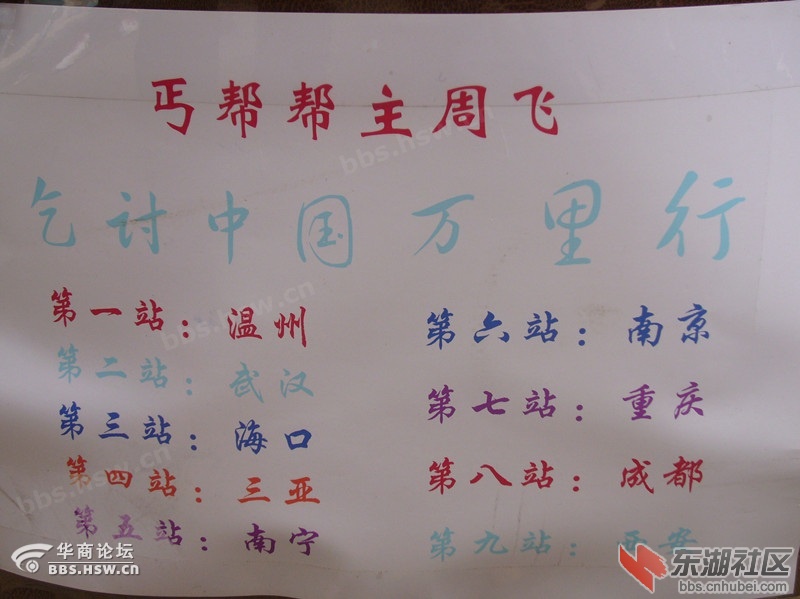 丐帮帮主周飞
乞讨中国万里行
第一站：温州
第二站：武汉
第三站：海口
第四站：三亚
第五站：南宁
第六站：南京
第七站：重庆
第八站：成都
第九站：西安
bbs.hsw.cn
bbs.hsw.cn
bbs.hsw.cn
华商论坛
BBS.HSW.CN
东湖社区
bbs.cnhubei.com